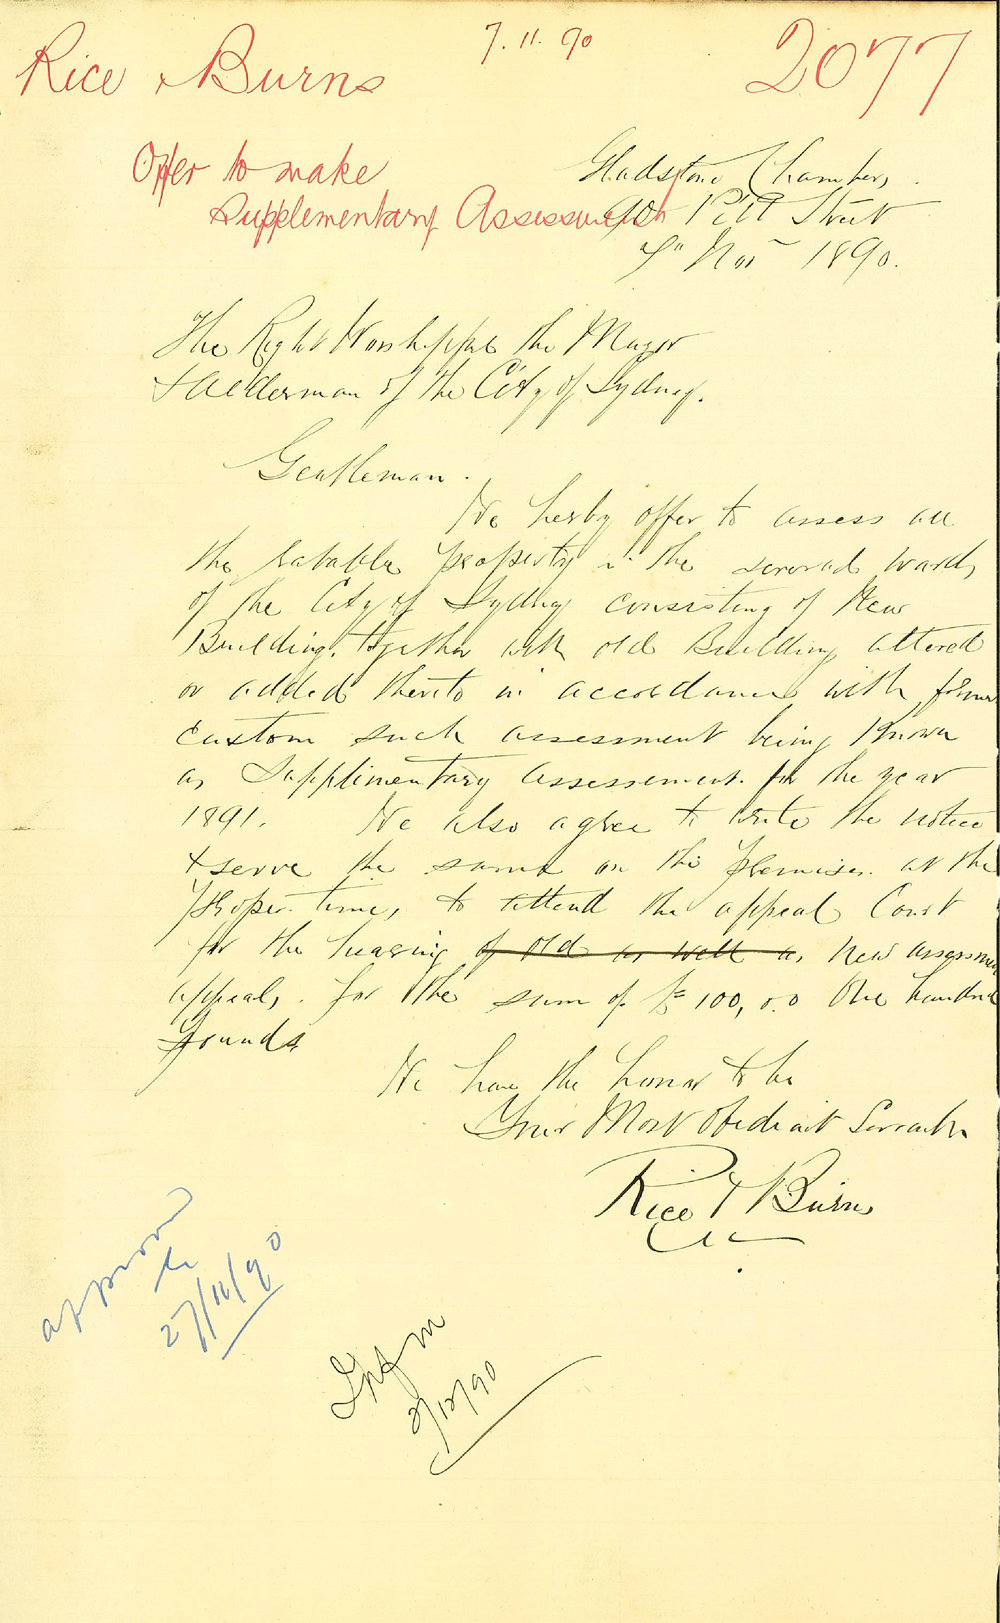 7.11.90
2077
Rice & Burns
Offer to make
Supplementary Assessment
Gladstone Chambers,
90 Pitt Street
7th Nov 1890.
The Right Worshippful the Mayor
& Allderman of the City of Sydney.
Gentleman.
We herby offer to assess all
the ratable property in the several wards
of the City of Sydney consisting of New
Building, together with old Building altered
or added thereto in accordance with former
custom such assessment being Known
as Supplimentary assessement for the year
1891. We also agree to write the notice
& serve the same on the premises at the
proper time, to attend the appeal Court
for the hearing of old as well as new assessment
appeals, for the sum of £100,0.0 One hundred
pounds
We have the honor to be
Your Most Obedient Servants
Rice & Burns
approved
27/11/90
Inf m
2/12/90